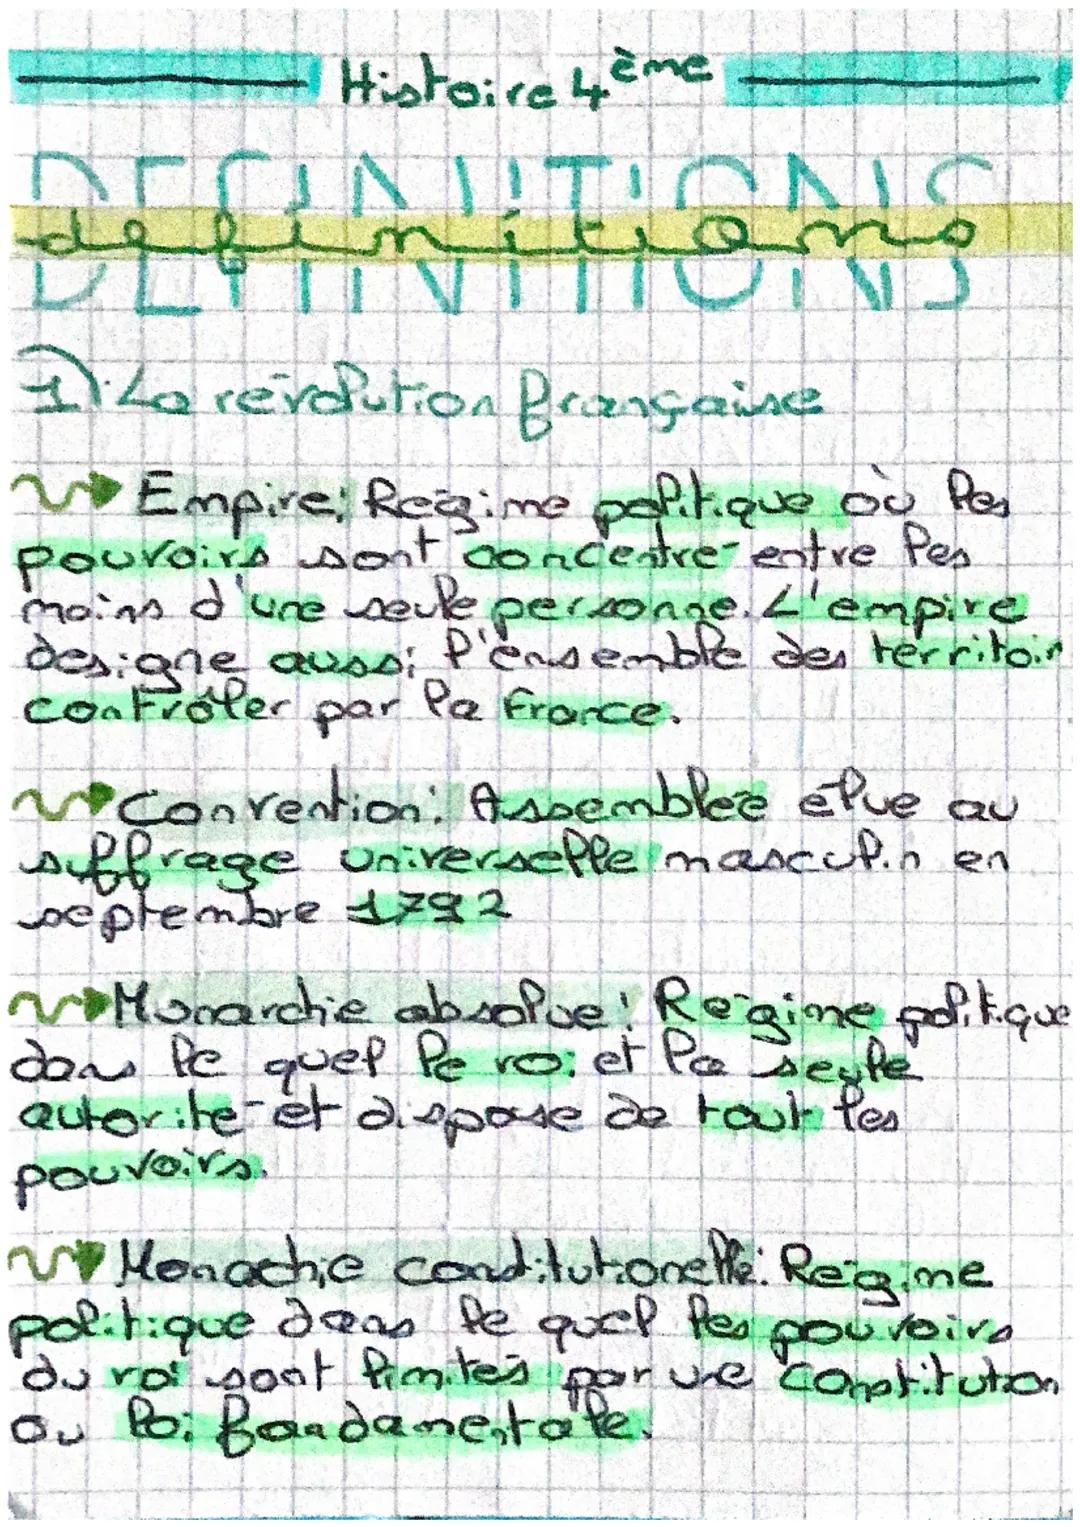 Histoire 4ème
DEFINITIONS
definitions
1) La révolution française
Empire: Régime politique où les
pouvoirs sont concentré entre les
mains d'une seule personne. L'empire
désigne aussi l'ensemble des territoir
contrôler par la France.
Convention: Assemblée élue au
suffrage universelle masculin en
septembre 1792
Monarchie absolue: Régime politique
dans le quel le roi et la seule
autorité et dispose de tout les
pouvoirs.
Monachie conditutionelle: Régime
politique dans le quel les pouvoirs
du roi sont limités par une constitution
ou loi fondamentale.